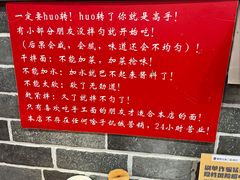 一定要huo转！huo转了你就是高手！
有小部分朋友没拌匀就开始吃！
（后果会咸，会腻，味道还会不均匀）！
干拌面：不能加菜，加菜抢味！
不能加水：加水就巴不起来酱料了！
不能太软：软了无劲道！
赶紧拌：久了就拌不匀了！
只有喜欢吃手工面的朋友才适合本店的面！
本店不存在任何
24小时营业！